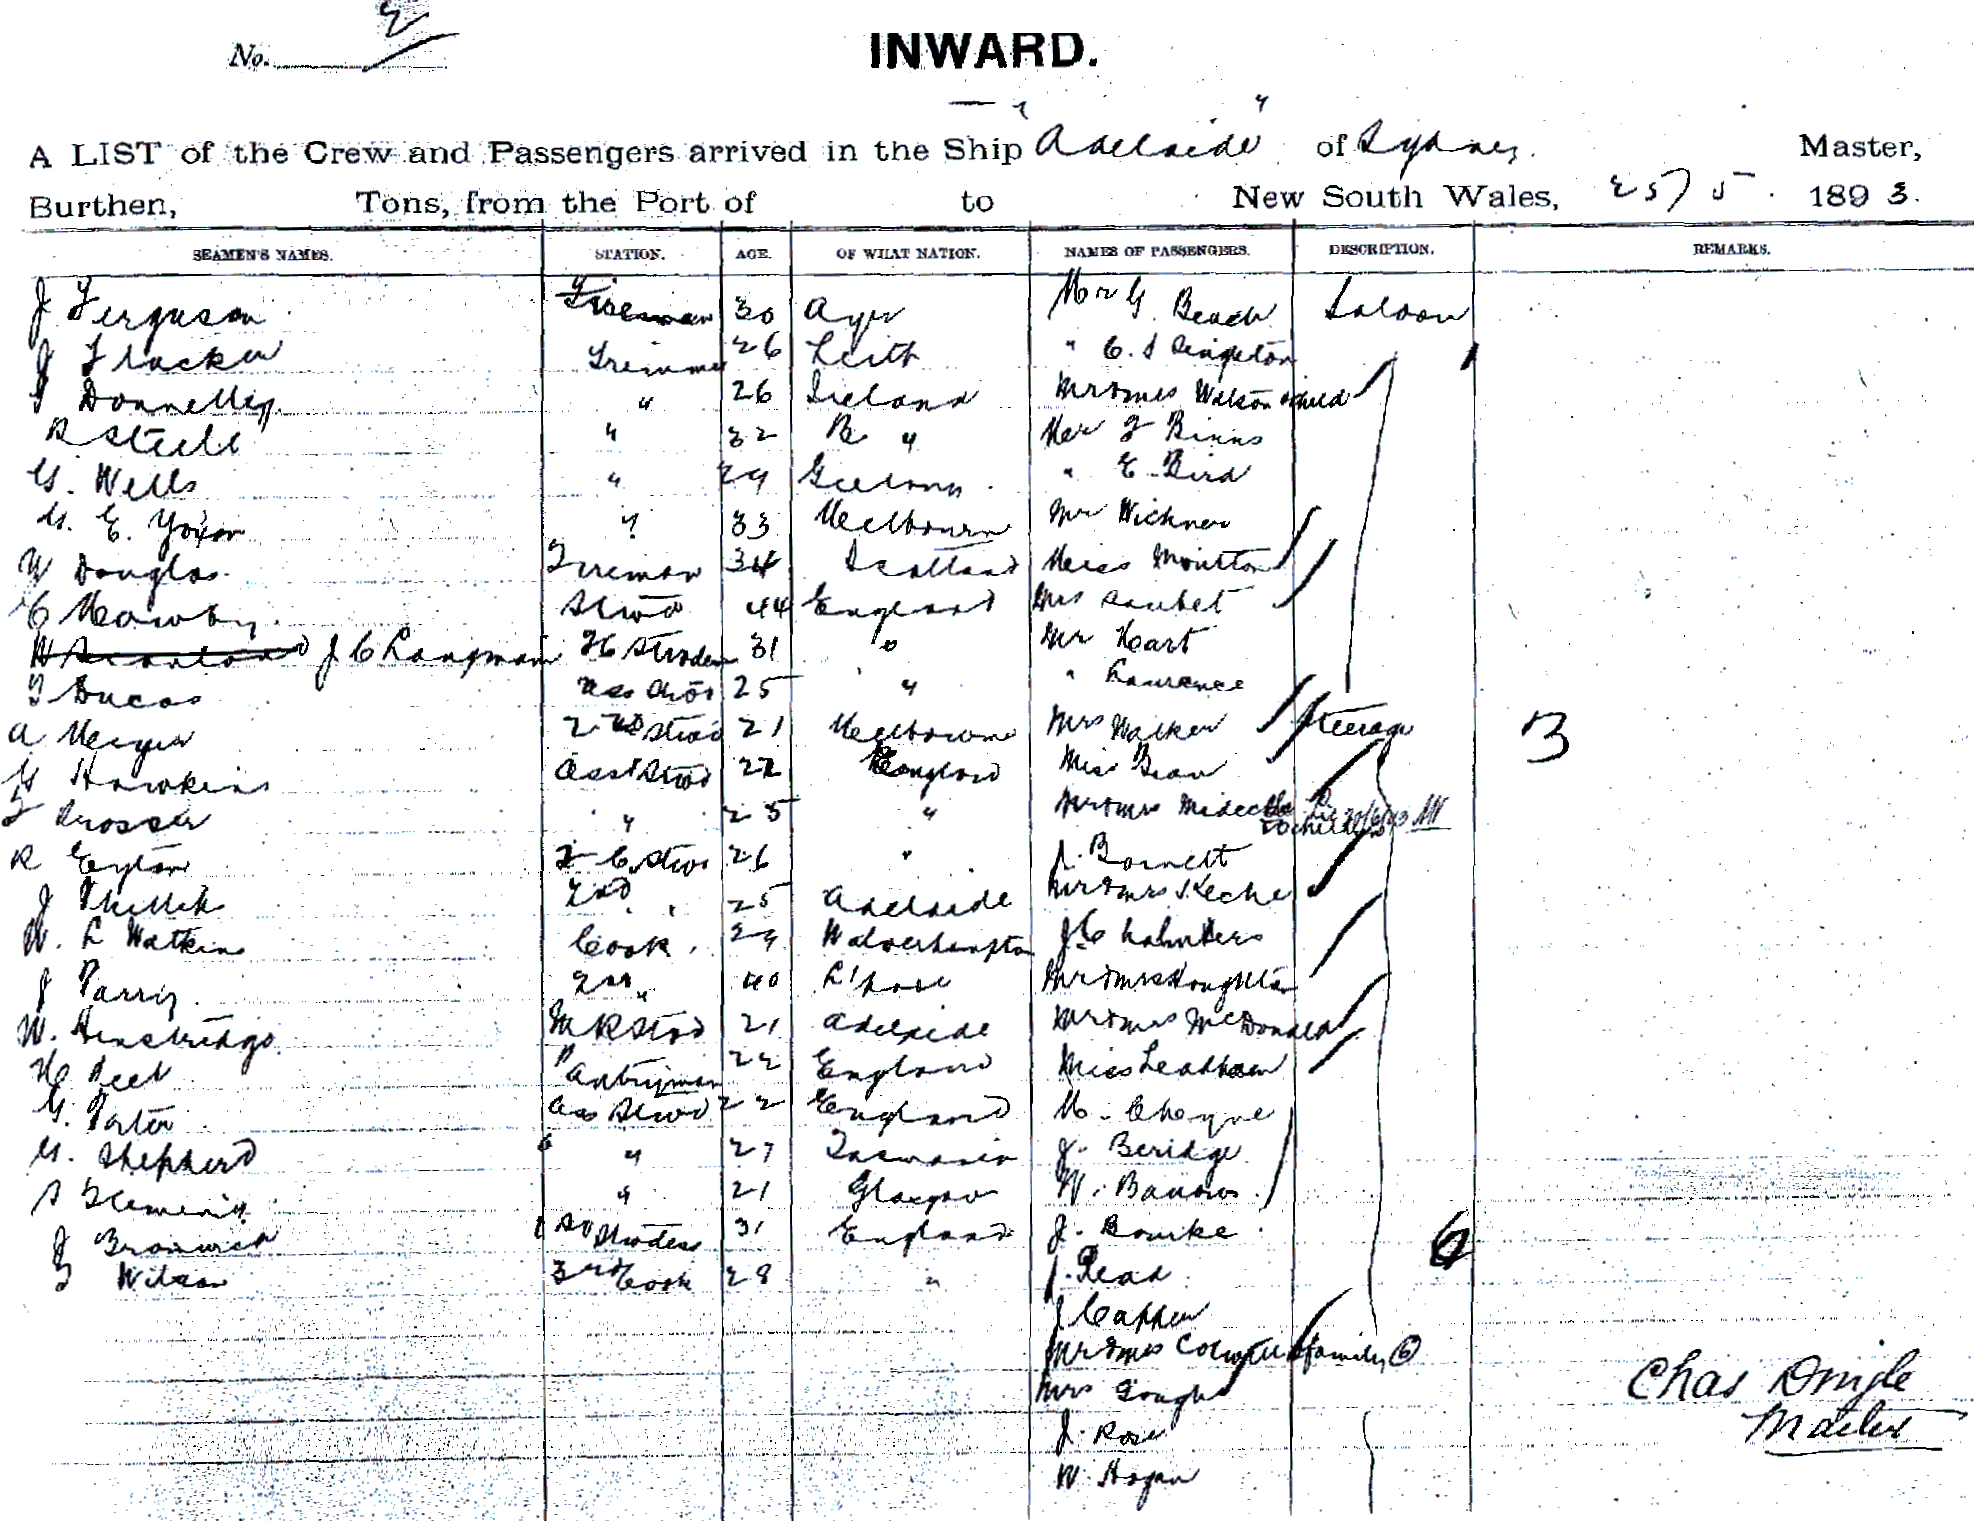 No. 2
INWARD.
A LIST of the Crew and Passengers arrived in the Ship "Adelaide" of Sydney Master,
Burthen, Tons, from the Port of to New South Wales, 25/5. 1893.
SEAMEN'S NAMES. STATION. AGE. OF WHAT NATION. NAMES OF PASSENGERS. DESCRIPTION. REMARKS.
J Ferguson Fireman 30 Ayr Mr G. Beach Saloon
J Trimmer 26 Leith " C. S Singleton
Donnelly " 26 Ireland Mr & Mrs Wilson & child
R Steele " 32 B " Mr F Binns
G. Wells " 29 Geelong. " E. Bird
G. E. Yoxon " 33 Melbourn Mr Wickner
W Douglas. Fireman 34 Scotland Miss Moulton
C Mawby. Stwd 44 England Mrs
J C Langman FC Strdess 31 " Mr Hart
Ducas Ass Stwd 25 " " Laurence
A Meyer 2nd Stwd 21 Melbourne Mrs Walker Steerage 3
G Hawkins Asst Stwd 22 England Miss
F Prosser " 25 " Mr & Mrs
R Eyton F C Stwd 26 " J. Barnett
J 2nd " 25 Adelaide Mr & Mrs Keche
W. L Watkins Cook. 29 Wolverhampton J. Chalmers
J Parry. 2nd " 40 L'pool Mr & Mrs Houghton
W. Henstridge M R Stwd 21 Adelaide Mr & Mrs McDonald
H Peet Pantryman 22 England Miss Leadham
G. Porter Ass Stwd 22 England M. Cheyne
G. Shepherd " 27 Tasmania J. Beridge
A Fleming " 21 Glasgow W. Barrows.
J Bromwich Strdess 31 England J. Bourke 6
Wilson 3rd Cook 28 " J. Read
J Capper
Mr & Mrs & family 6
Mrs Gough
J. Rose
W. Hogan
Chas Dingle
Master